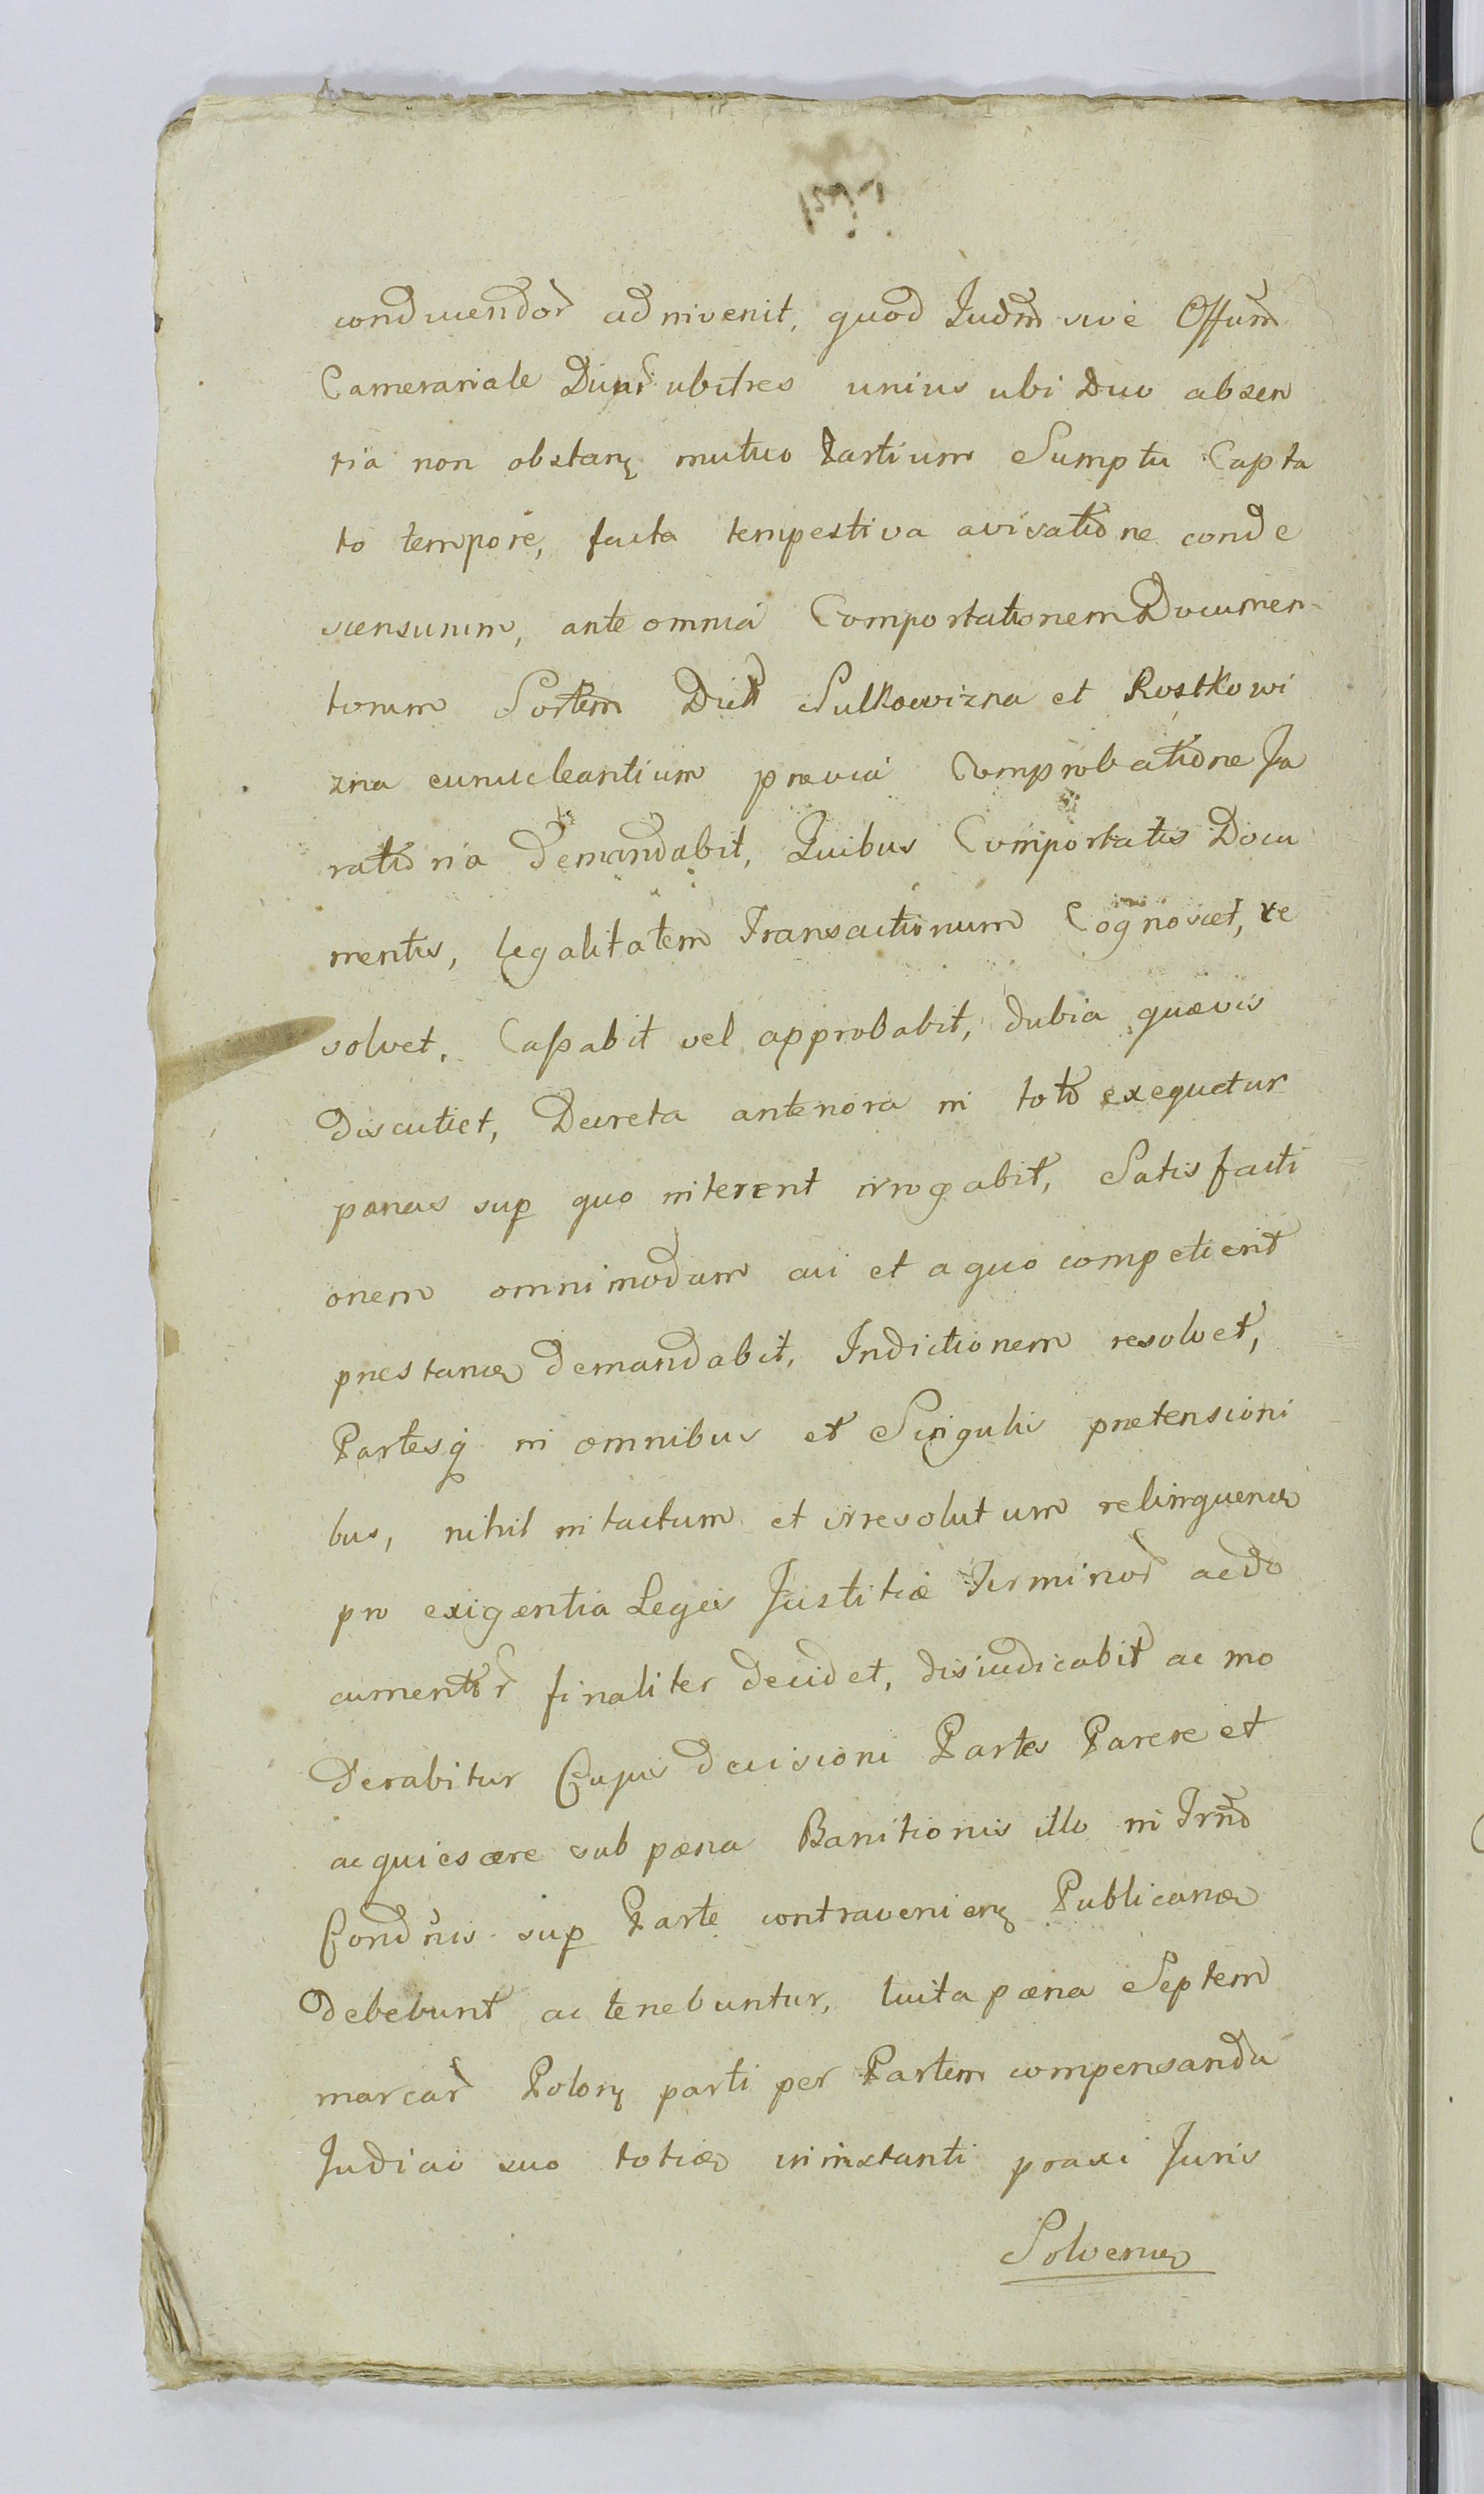 conducendor adinvenit, quod Iudm sive Offum
Camerariale Duor ubi tres unius ubi Duo absen
tia non obstanȝ mutuo Partium Sumptu Capta
to tempore, facta tempestiva avisatione conde
scensurum, ante omnia Comportationem Documen-
torum Sortem Dict Sulkowizna et Rostkowi
zna enucleantium praevia Comprobatione Ju
ratoria demandabit, Quibus Comportatis Docu
mentis, legalitatem Transactionum Cognoscet, re
solvet, Cassabit vel approbabit, dubia quaevis
discutiet, Decreta anteriora in toto exequetur
paenas sup quo interent irrogabit, Satisfacti
onem omnimodam cui et a quo competierit
praestanda demandabit, Indictionem resolvet,
Partesq in omnibus et Singulis praetensioni
bus, nihil intactum et irresolutum relinquendo
pro exigentia Legis Justitiae Terminor ac do
cumentor finaliter decidet, disiudicabit ac mo
derabitur Cujus decisioni Partes Parere et
acquiescere sub paena Banitionis illo in Trno
Condnis sup Parte contravenienȝ Publicanda
debebunt ac tenebuntur, luita paena Septem
marcar Polonȝ parti per Partem compensanda
Judicio suo toties in instanti praxi Juris
Solvenda